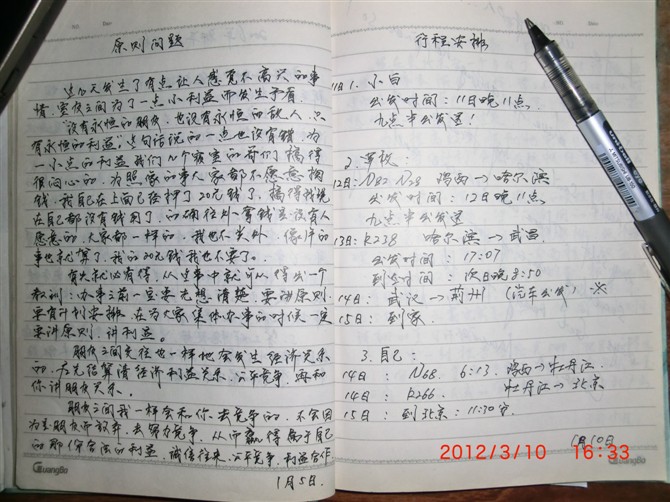 原则问题
这几天发生了有点让人感觉不高兴的事
情,室友之间为了一点小利益而发生矛盾,
没有永恒的朋友,也没有永恒的敌人,只
有永恒的利益,这句话说的一点也没有错,为
一小点的利益我们几个寝室的哥们搞得
很闹心的,为照象的事人家都不愿意掏
钱,我自己在上面已经押了20元钱了,搞得我现
在自己都没有钱用了,的确往外拿钱是没有人
愿意的,大家都一样的,我也不例外,像片的
事也就算了,我的20元钱我也不要了。
有失就必有得,从这事中就可以得出一个
教训:办事之前一定要先想清楚,要讲原则
要有计划安排,在为大家集体办事的时候一定
要讲原则,讲利益。
朋友之间交往也一样地会发生经济关系
的,力先结算清经济利益关系,公平竞争,再和
你讲朋友关系。
朋友之间我一样会和你去竞争的,不会因
为是朋友而放弃,去努力竞争,从而赢得属于自己
的那份合法的利益,诚信往来,公平竞争,利益合作
1月5日.
GuangBo
行程安排
11日 1. 小白
出发时间:11日晚11点
九点半出发室!
2.
12日: N82 N58 鸡西→哈尔滨
出发时间:12日晚11点
九点半出发室
13日: K238 哈尔滨→武昌
出发时间:17:07
到站时间:次日晚8:50
14日: 武汉→荆州 (汽车出发) ※
15日: 到家.
3. 自己:
14日: N68. 6:13. 鸡西→牡丹江
14日: K266 牡丹江→北京
15日: 到北京:11:30分
1月10日
GuangBo
2012/3/10 16:33